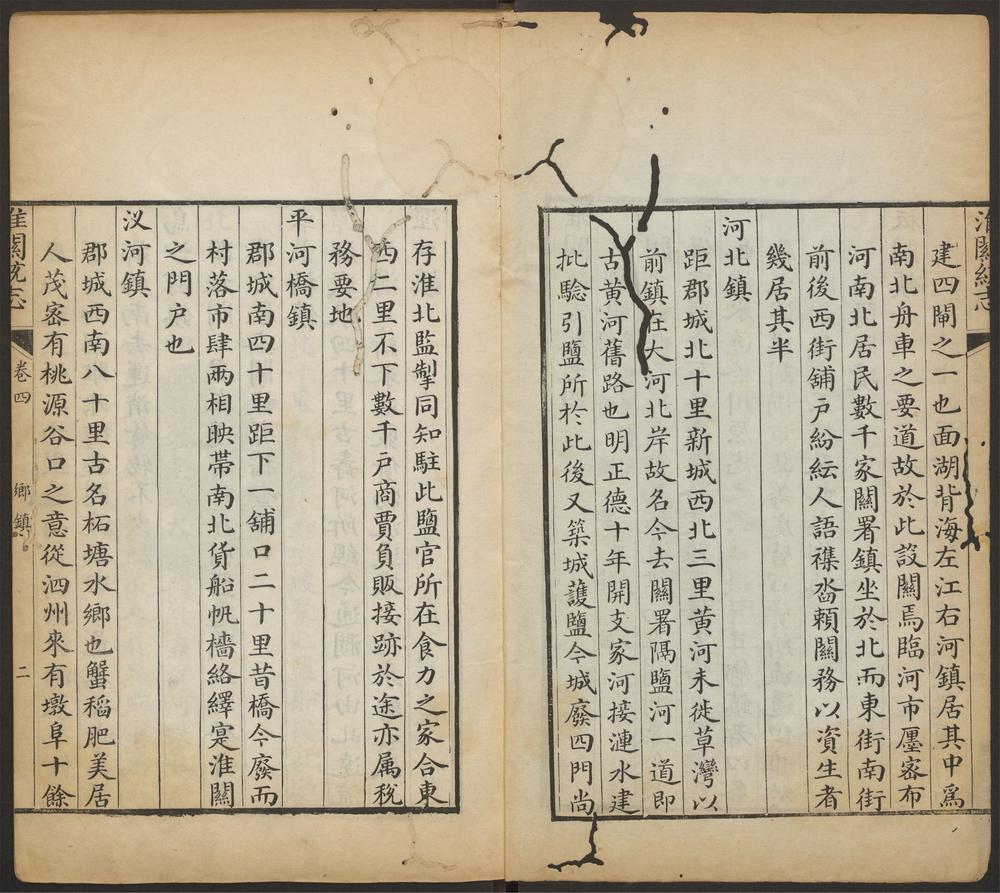 建四閘之一也面湖背海左江右河鎮居其中爲
南北舟車之要道故於此設關焉臨河市廛密布
河南北居民數千家關署鎮坐於北而東街南街
前後西街舖戸紛紜人語襍沓賴關務以資生者
幾居其半
河北鎮
距郡城北十里新城西北三里黄河未徙草灣以
前鎮在大河北岸故名今去關署隔鹽河一道即
古黄河舊路也明正德十年開支家河接漣水建
批驗引鹽所於此後又築城護鹽今城廢四門尚
存淮北監掣同知駐此鹽官所在食力之家合東
西二里不下數千戸商賈負販接跡於途亦属稅
務要地
平河橋鎮
郡城南四十里距下一舖口二十里昔橋今廢而
村落市肆兩相映帯南北貨船帆檣絡繹寔淮關
之門戸也
汊河鎮
郡城西南八十里古名柘塘水鄉也蟹稻肥美居
人茂密有桃源谷口之意從泗州來有墩阜十餘
淮關統志
卷四
鄉鎮
二